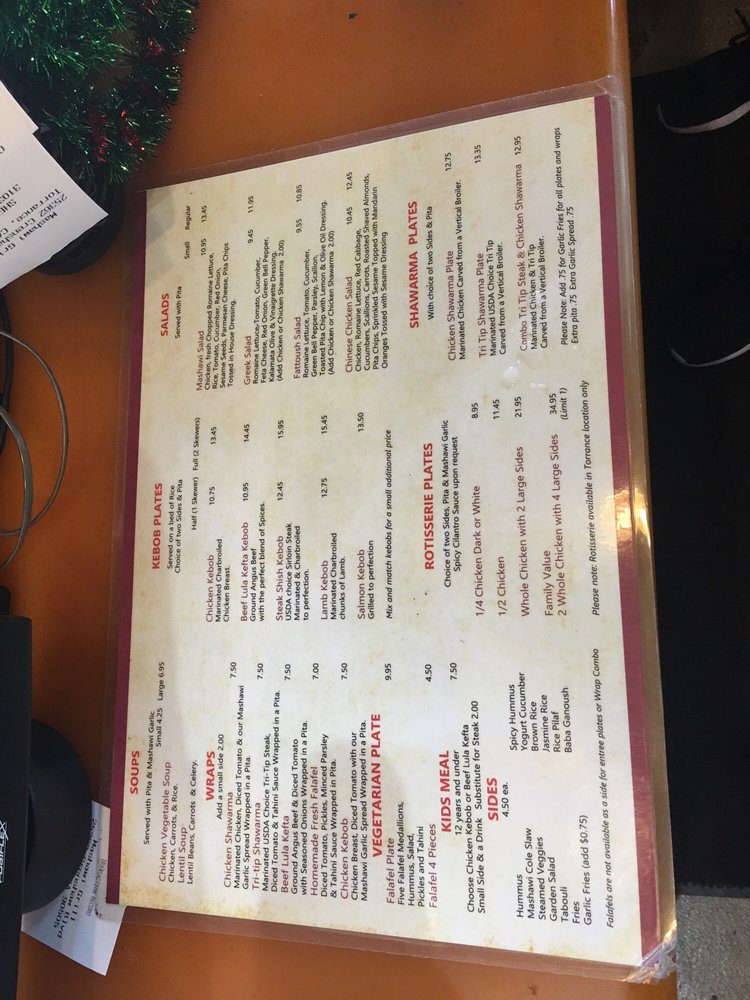 SOUPS
Served with Pita & Mashawi Garlic
Small 4.25 Large 6.95
Chicken Vegetable Soup
Chicken, Carrots, & Rice.
Lentil Soup
Lentil Beans, Carrots & Celery.
WRAPS
Add a small side 2.00
Chicken Shawarma 7.50
Marinated Chicken, Diced Tomato & our Mashawi
Garlic Spread Wrapped in a Pita.
Tri-tip Shawarma 7.50
Marinated USDA Choice Tri-Tip Steak,
Diced Tomato & Tahini Sauce Wrapped in a Pita.
Beef Lula Kefta 7.50
Ground Angus Beef & Diced Tomato
with Seasoned Onions Wrapped in a Pita.
Homemade Fresh Falafel 7.00
Diced Tomato, Pickles, Minced Parsley
& Tahini Sauce Wrapped in a Pita.
Chicken Kebob 7.50
Chicken Breast, Diced Tomato with our
Mashawi Garlic Spread Wrapped in a Pita.
VEGETARIAN PLATE
Falafel Plate 9.95
Five Falafel Medallions,
Hummus, Salad,
Pickles and Tahini
Falafel 4 Pieces 4.50
KIDS MEAL
12 years and under
Choose Chicken Kebob or Beef Lula Kefta 7.50
Small Side & a Drink Substitute for Steak 2.00
SIDES
4.50 ea.
Hummus
Mashawi Cole Slaw
Steamed Veggies
Garden Salad
Tabouli
Fries
Garlic Fries (add $0.75)
Spicy Hummus
Yogurt Cucumber
Brown Rice
Jasmine Rice
Rice Pilaf
Baba Ganoush
Falafels are not available as a side for entree plates or Wrap Combo
KEBOB PLATES
Served on a bed of Rice
Choice of two Sides & Pita
Half (1 Skewer) Full (2 Skewers)
Chicken Kebob 10.75 13.45
Marinated Charbroiled
Chicken Breast.
Beef Lula Kefta Kebob 10.95 14.45
Ground Angus Beef
with the perfect blend of Spices.
Steak Shish Kebob 12.45 15.95
USDA choice Sirloin Steak
Marinated & Charbroiled
to perfection.
Lamb Kebob 12.75 15.45
Marinated Charbroiled
chunks of Lamb.
Salmon Kebob 13.50
Grilled to perfection
Mix and match kebobs for a small additional price
ROTISSERIE PLATES
Choice of two Sides, Pita & Mashawi Garlic
Spicy Cilantro Sauce upon request
1/4 Chicken Dark or White 8.95
1/2 Chicken 11.45
Whole Chicken with 2 Large Sides 21.95
Family Value
2 Whole Chicken with 4 Large Sides 34.95
(Limit 1)
Please note: Rotisserie available in Torrance location only
SALADS
Served with Pita
Small Regular
Mashawi Salad 10.95 13.45
Chicken, fresh Chopped Romaine Lettuce,
Rice, Tomato, Cucumber, Red Onion,
Sesame Seeds, Parmesan Cheese, Pita Chips
Tossed in House Dressing.
Greek Salad 9.45 11.95
Romaine Lettuce, Tomato, Cucumber,
Feta Cheese, Red Onion, Green Bell Pepper,
Kalamata Olive & Vinaigrette Dressing.
(Add Chicken or Chicken Shawarma 2.00)
Fattoush Salad 9.55 10.85
Romaine Lettuce, Tomato, Cucumber,
Green Bell Pepper, Parsley, Scallion,
Toasted Pita Chip with Lemon & Olive Oil Dressing.
(Add Chicken or Chicken Shawarma 2.00)
Chinese Chicken Salad 10.45 12.45
Chicken, Romaine Lettuce, Red Cabbage,
Cucumbers, Scallions, Carrots, Roasted Shaved Almonds,
Pita Chips, Sprinkled Sesame Topped with Mandarin
Oranges Tossed with Sesame Dressing
SHAWARMA PLATES
With choice of two Sides & Pita
Chicken Shawarma Plate 12.75
Marinated Chicken Carved from a Vertical Broiler.
Tri Tip Shawarma Plate 13.35
Marinated USDA Choice Tri Tip
Carved from a Vertical Broiler.
Combo Tri Tip Steak & Chicken Shawarma 12.95
Marinated Chicken & Tri Tip
Carved from a Vertical Broiler.
Please Note: Add .75 for Garlic Fries for all plates and wraps
Extra pita .75 Extra Garlic Spread .75
Mashawi
Torrance